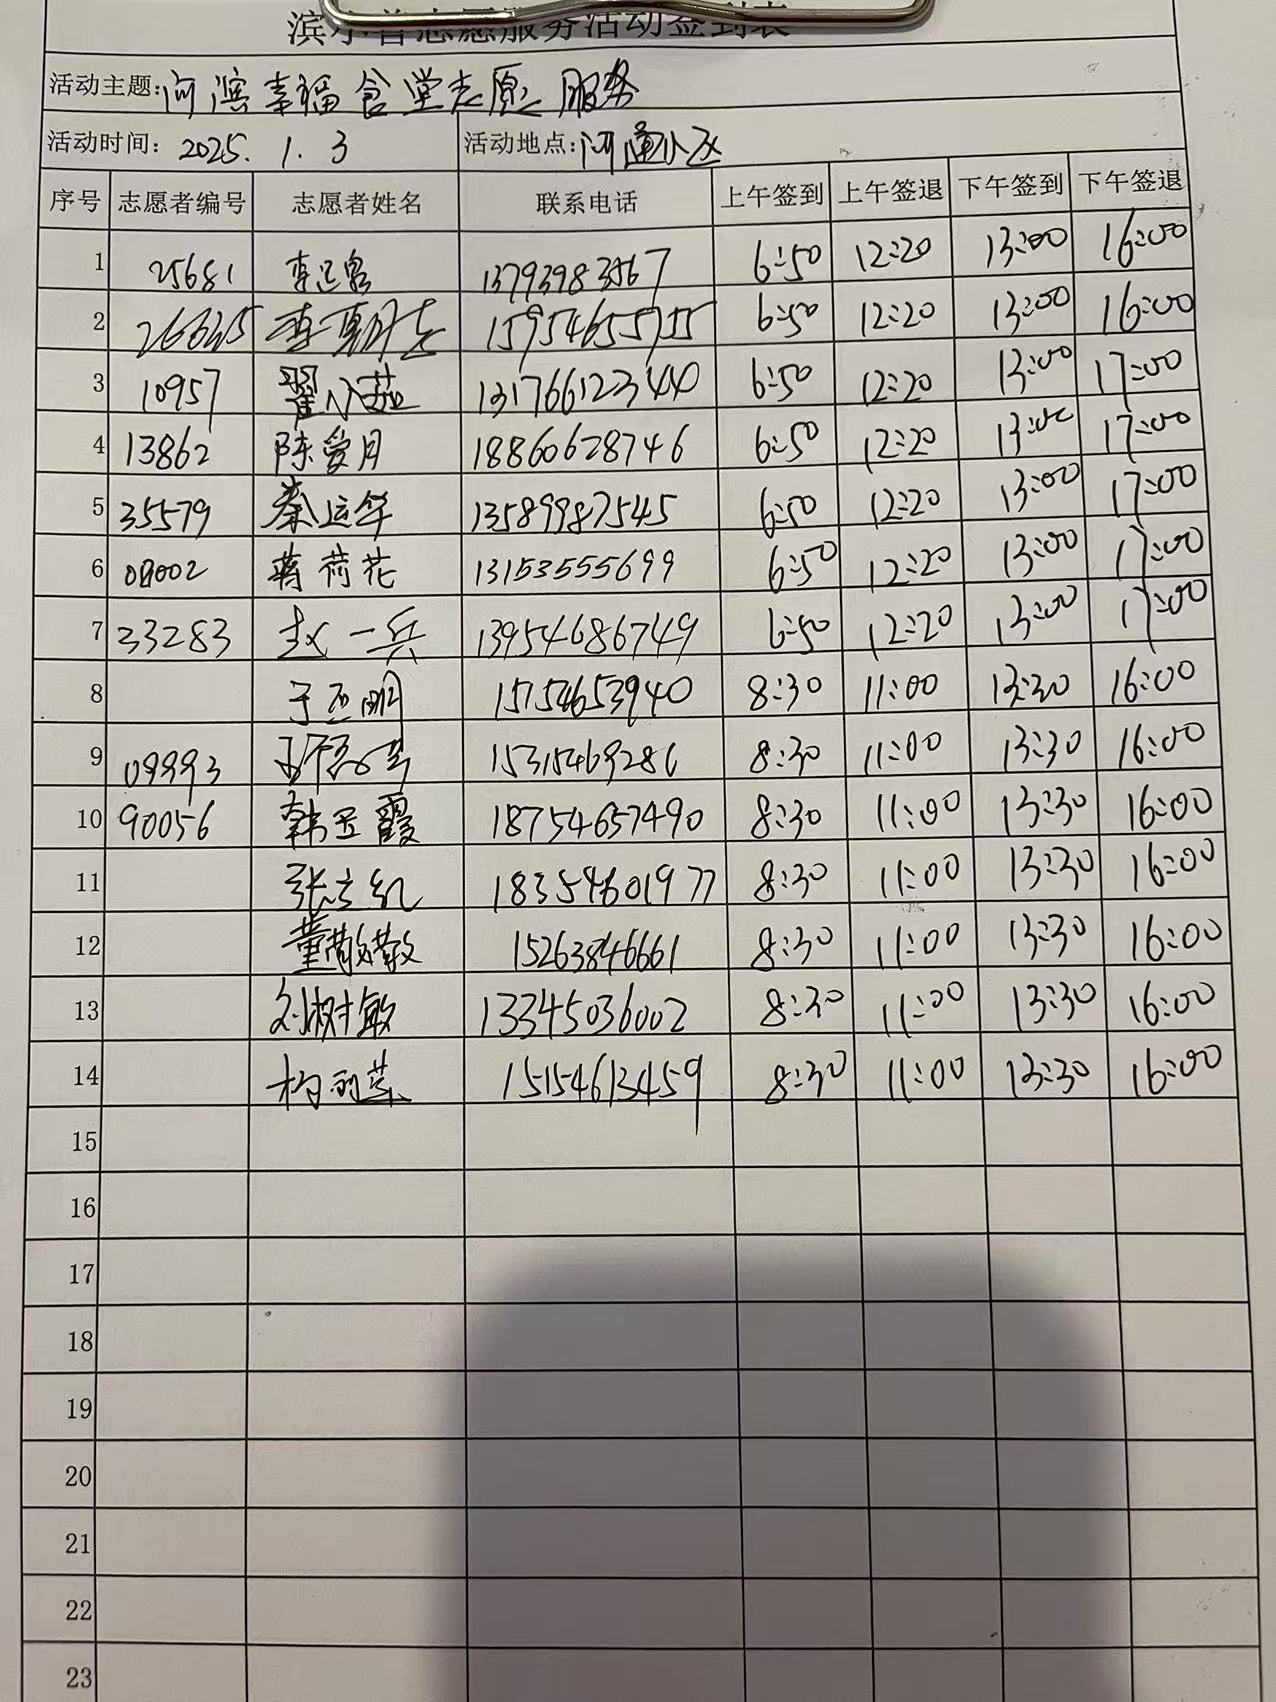 活动主题: 河滨幸福食堂志愿服务
活动时间: 2025. 1. 3 活动地点: 河通小区
序号 志愿者编号 志愿者姓名 联系电话 上午签到 上午签退 下午签到 下午签退
1 25681 李运客 13793983567 6:50 12:20 13:00 16:00
2 李 15954655755 6:50 12:20 13:00 16:00
3 10957 翟小茹 13176612344 6:50 12:20 13:00 17:00
4 13862 陈爱月 18860628746 6:50 12:20 13:00 17:00
5 35579 秦运华 13589987545 6:50 12:20 13:00 17:00
6 蒋荷花 13153555699 6:50 12:20 13:00 17:00
7 33283 赵一兵 13954686749 6:50 12:20 13:00 17:00
8 于亚明 15154653940 8:30 11:00 13:30 16:00
9 09993 15315469286 8:30 11:00 13:30 16:00
10 90056 韩玉霞 18754657490 8:30 11:00 13:30 16:00
11 张立红 18354601977 8:30 11:00 13:30 16:00
12 董敬敬 15263846661 8:30 11:00 13:30 16:00
13 刘树敏 13345036002 8:30 11:00 13:30 16:00
14 15154613459 8:30 11:00 13:30 16:00
15
16
17
18
19
20
21
22
23